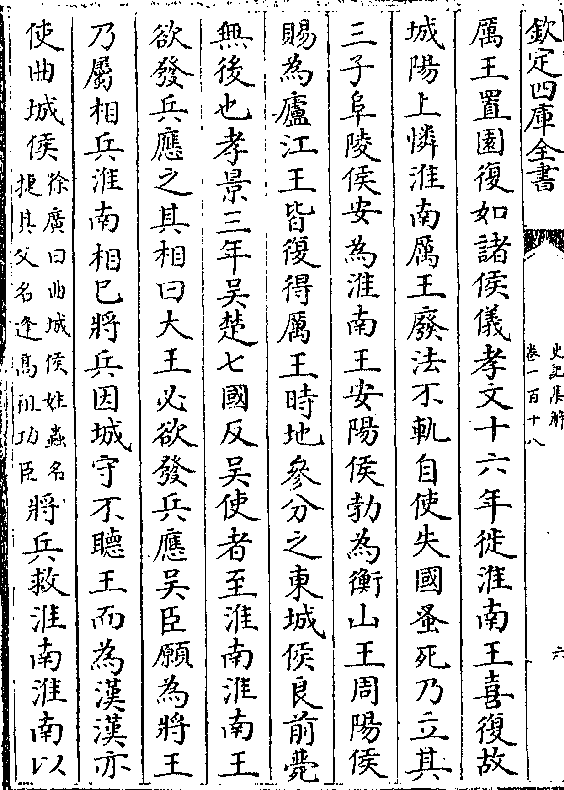 欽定四庫全書
史記集解
卷一百十八
六
厲王置園復如諸侯儀孝文十六年徙淮南王喜復故
城陽上憐淮南厲王廢法不軌自使失國蚤死乃立其
三子阜陵侯安為淮南王安陽侯勃為衡山王周陽侯
賜為廬江王皆復得厲王時地參分之東城侯良前薨
無後也孝景三年吳楚七國反吳使者至淮南淮南王
欲發兵應之其相曰大王必欲發兵應吳臣願為將王
乃屬相兵淮南相已將兵因城守不聽王而為漢漢亦
使曲城侯徐廣曰曲城侯姓蟲名捷其父名逢高祖功臣將兵救淮南淮南以